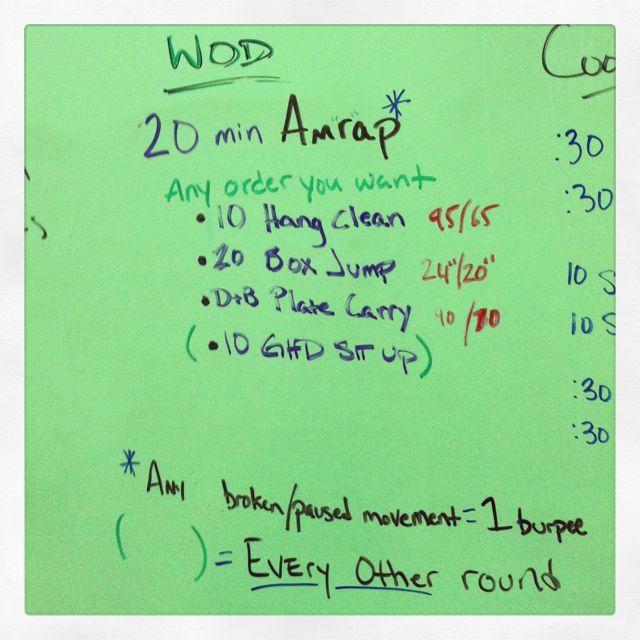 WOD
20 min Amrap*
Any order you want
• 10 Hang Clean 95/65
• 20 Box Jump 24"/20"
• D+B Plate Carry
(• 10 GHD SIT UP)
* Any broken/paused movement = 1 burpee
( ) = Every Other round
:30
:30
10 S
10 S
:30
:30